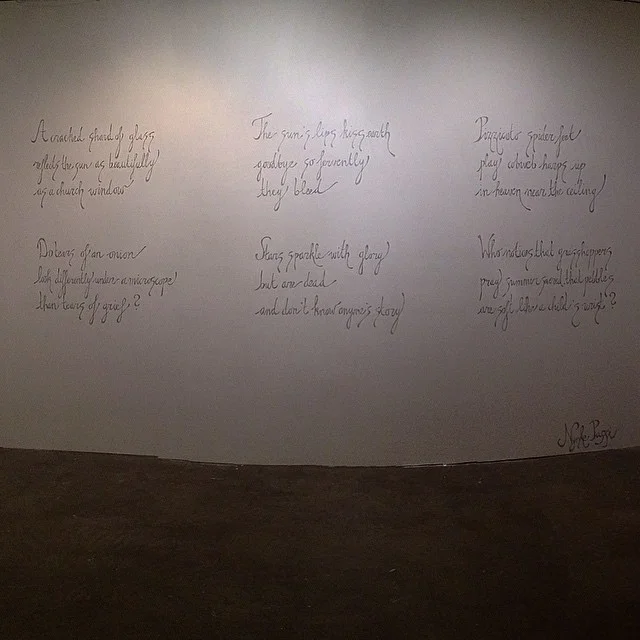 A cracked shard of glass
reflects the sun as beautifully
as a church window
Do tears of an onion
look differently under a microscope
than tears of grief?
The sun's lips kiss earth
goodbye so fervently
they bleed
Stars sparkle with glory
but are dead
and don't know anyone's story
spider feet
play which harps up
in heaven near the ceiling
Who notices that grasshoppers
pray, summers and that pebbles
are soft like a child's